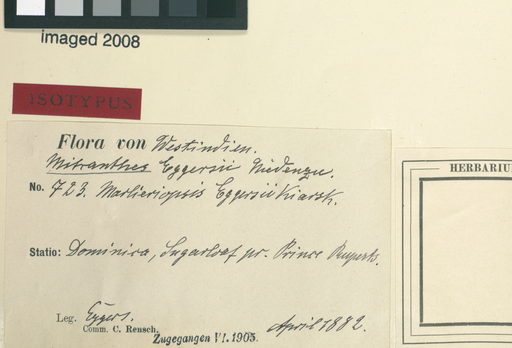 imaged 2008
ISOTYPUS
Flora von Westindien.
Mitranthes Eggersii Niedenzu.
No. 723. Marlieriopsis Eggersii Kiaersk.
HERBARIU
Statio: Dominica, Sugarloaf pr. Prince Ruperts.
Leg. Eggers.
Comm. C. Rensch.
April 1882.
Zugegangen VI. 1905.